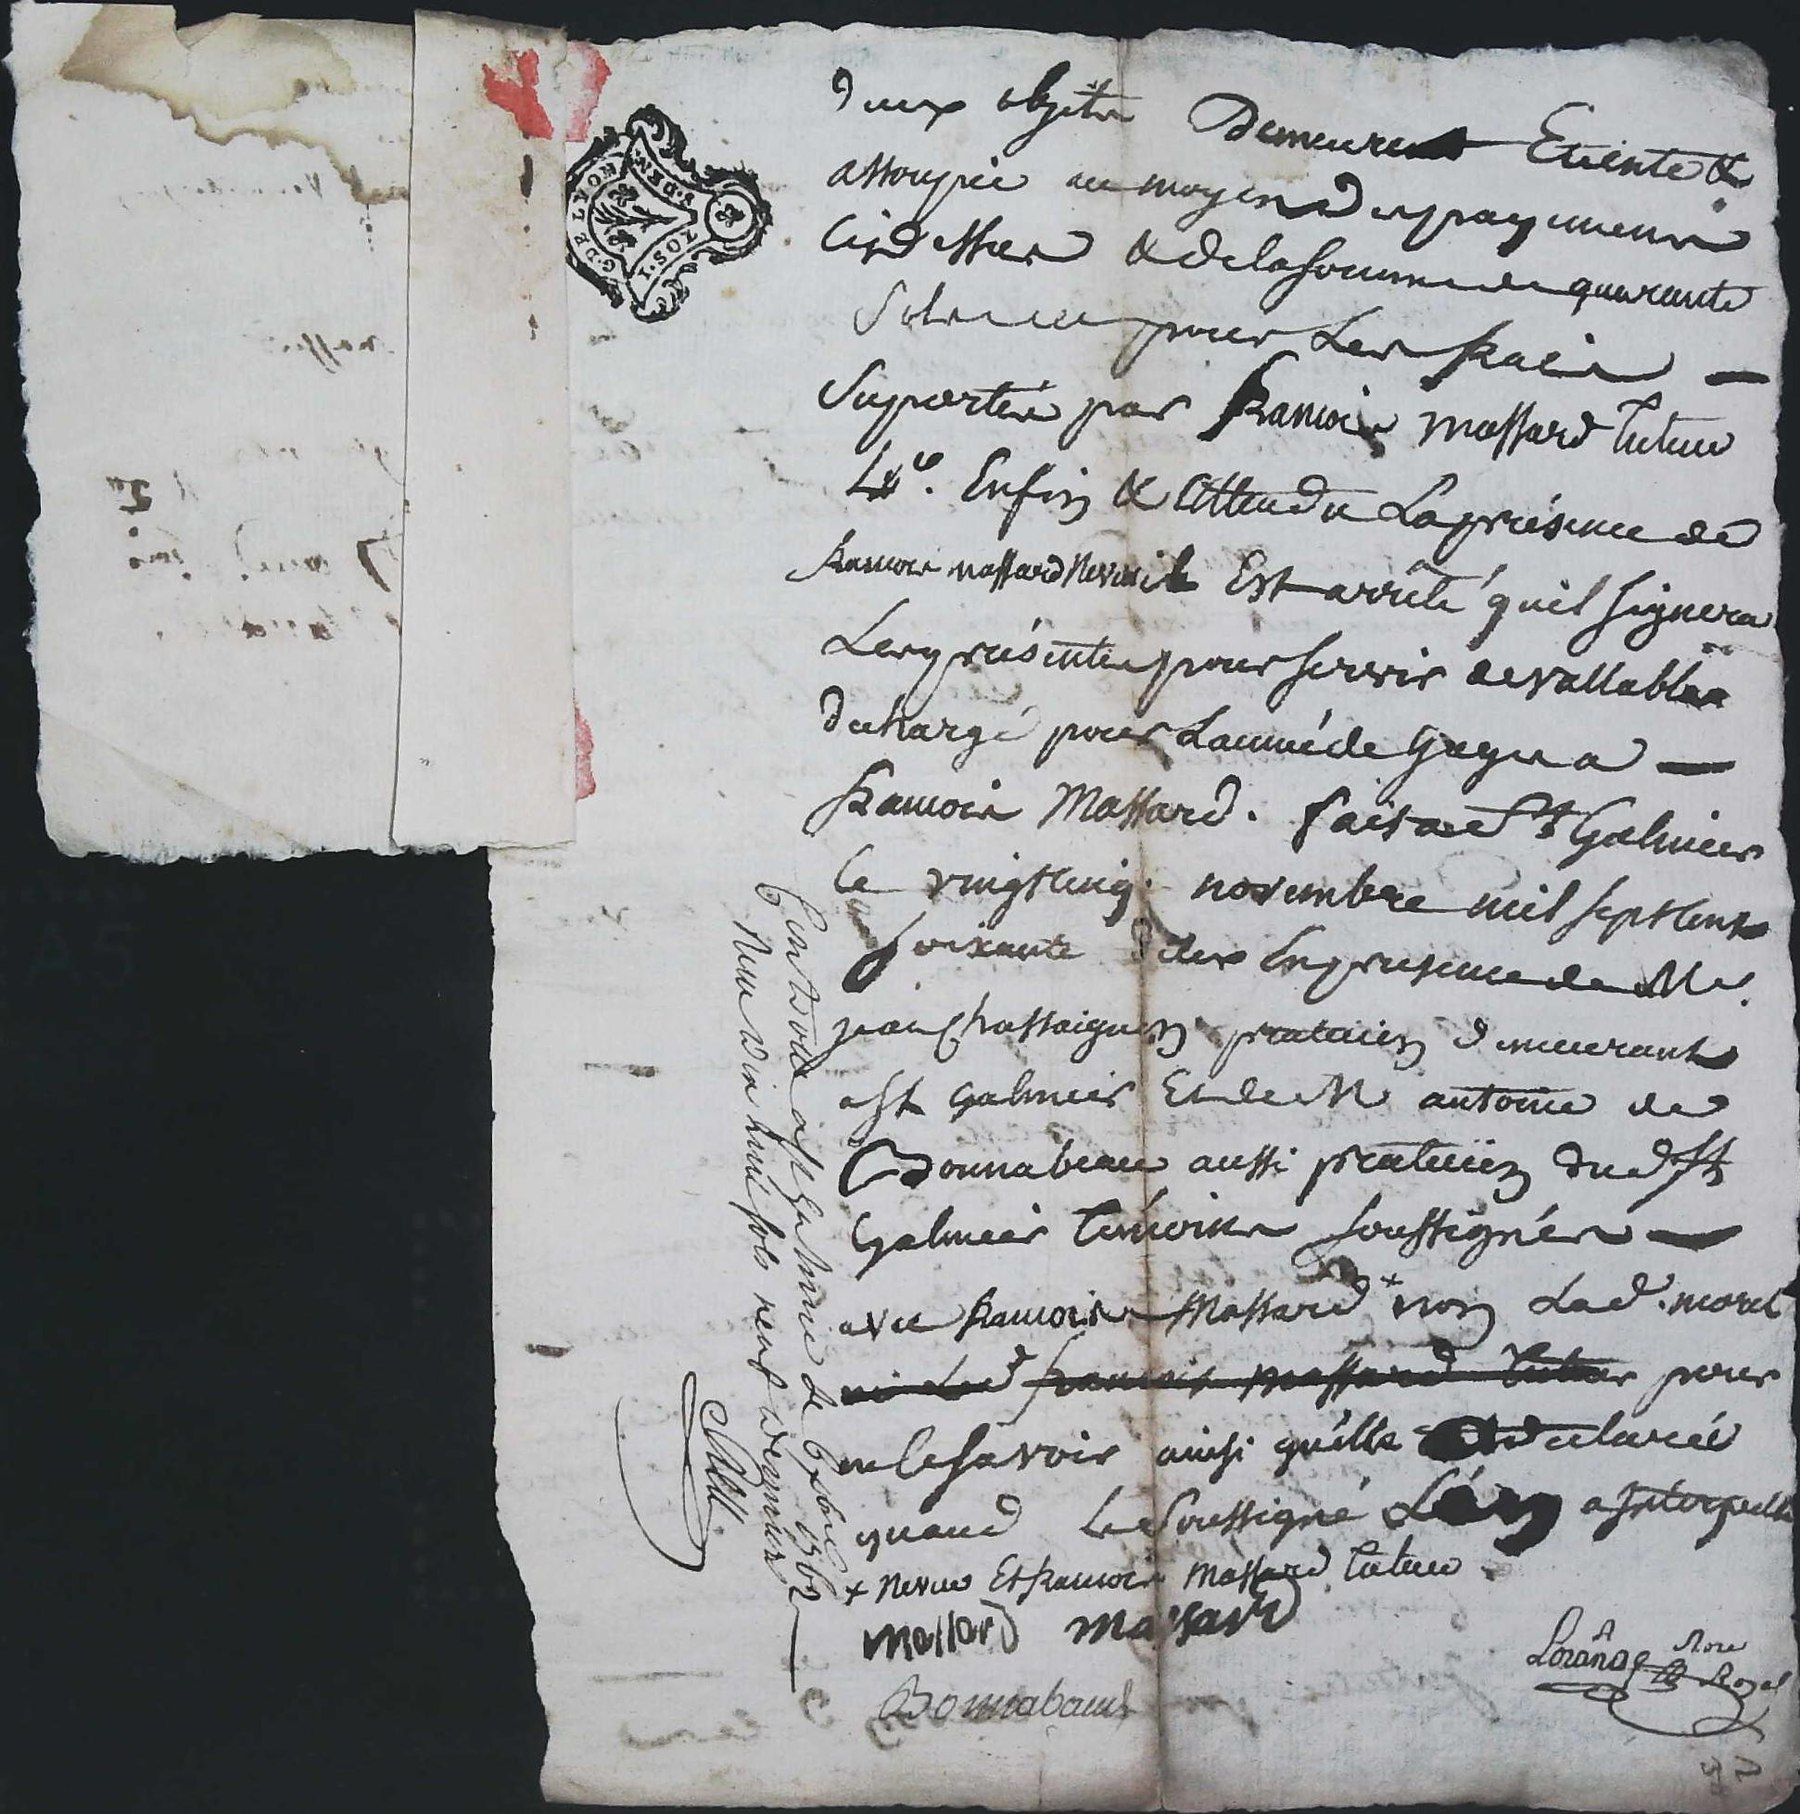 deux objets Demeurent Eteinte &
assoupie au moyen du payement
Cy dessus & de la somme de quarante
Sols pour Les frais —
Suportés par francois massard tuteur
4°. Enfin & attendu La présence de
francois massard neveu il Est arrêté quil signera
Les présentes pour servir de vallable
decharge pour Lannée de gages a —
francois Massard. fait a St Galmier
le vingt cinq novembre mil sept cent
soixante deux En presence de Me.
jean Chassaignon praticien demeurant
a St Galmier Et de Me antoine de
Bonnabeau aussi praticien dud St
Galmier temoins soussignés —
avec francois Massard + non Lad. morel
ni led francois massard tuteur pour
ne le savoir ainsi quelle a declaré
quand Le soussigné Len a interpellé
+ neveu Et francois Massard tuteur.
massard massard
Bonnabaud
Nore Royal
Controllé a St Galmier le 6 xbre 1762
Reçu dix huit sols neuf deniers
G.DE LYON
S.DEN.